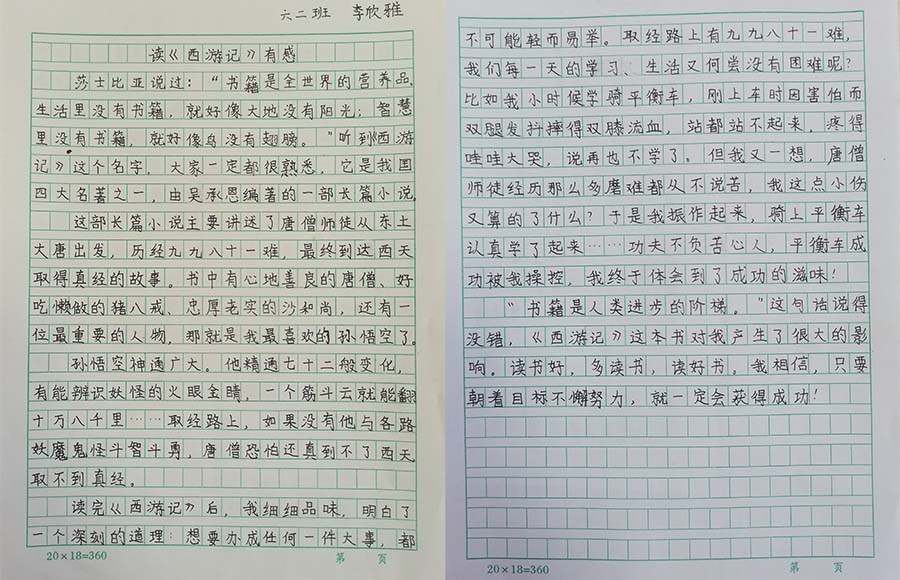 六二班 李欣雅
读《西游记》有感
莎士比亚说过：“书籍是全世界的营养品。
生活里没有书籍，就好像大地没有阳光；智慧
里没有书籍，就好像鸟没有翅膀。”听到《西游
记》这个名字，大家一定都很熟悉，它是我国
四大名著之一，由吴承恩编著的一部长篇小说。
这部长篇小说主要讲述了唐僧师徒从东土
大唐出发，历经九九八十一难，最终到达西天
取得真经的故事。书中有心地善良的唐僧、好
吃懒做的猪八戒、忠厚老实的沙和尚，还有一
位最重要的人物，那就是我最喜欢的孙悟空了。
孙悟空神通广大。他精通七十二般变化，
有能辨识妖怪的火眼金睛，一个筋斗云就能翻
十万八千里……取经路上，如果没有他与各路
妖魔鬼怪斗智斗勇，唐僧恐怕还真到不了西天
取不到真经。
读完《西游记》后，我细细品味，明白了
一个深刻的道理：想要办成任何一件大事，都
20×18=360 第 页
不可能轻而易举。取经路上有九九八十一难，
我们每一天的学习、生活又何尝没有困难呢？
比如我小时候学骑平衡车，刚上车时因害怕而
双腿发抖摔得双膝流血，站都站不起来，疼得
哇哇大哭，说再也不学了。但我又一想，唐僧
师徒经历那么多磨难都从不说苦，我这点小伤
又算的了什么？于是我振作起来，骑上平衡车
认真学了起来……功夫不负苦心人，平衡车成
功被我操控，我终于体会到了成功的滋味！
“书籍是人类进步的阶梯。”这句话说得
没错，《西游记》这本书对我产生了很大的影
响。读书好，多读书，读好书。我相信，只要
朝着目标不懈努力，就一定会获得成功！
20×18=360 第 页